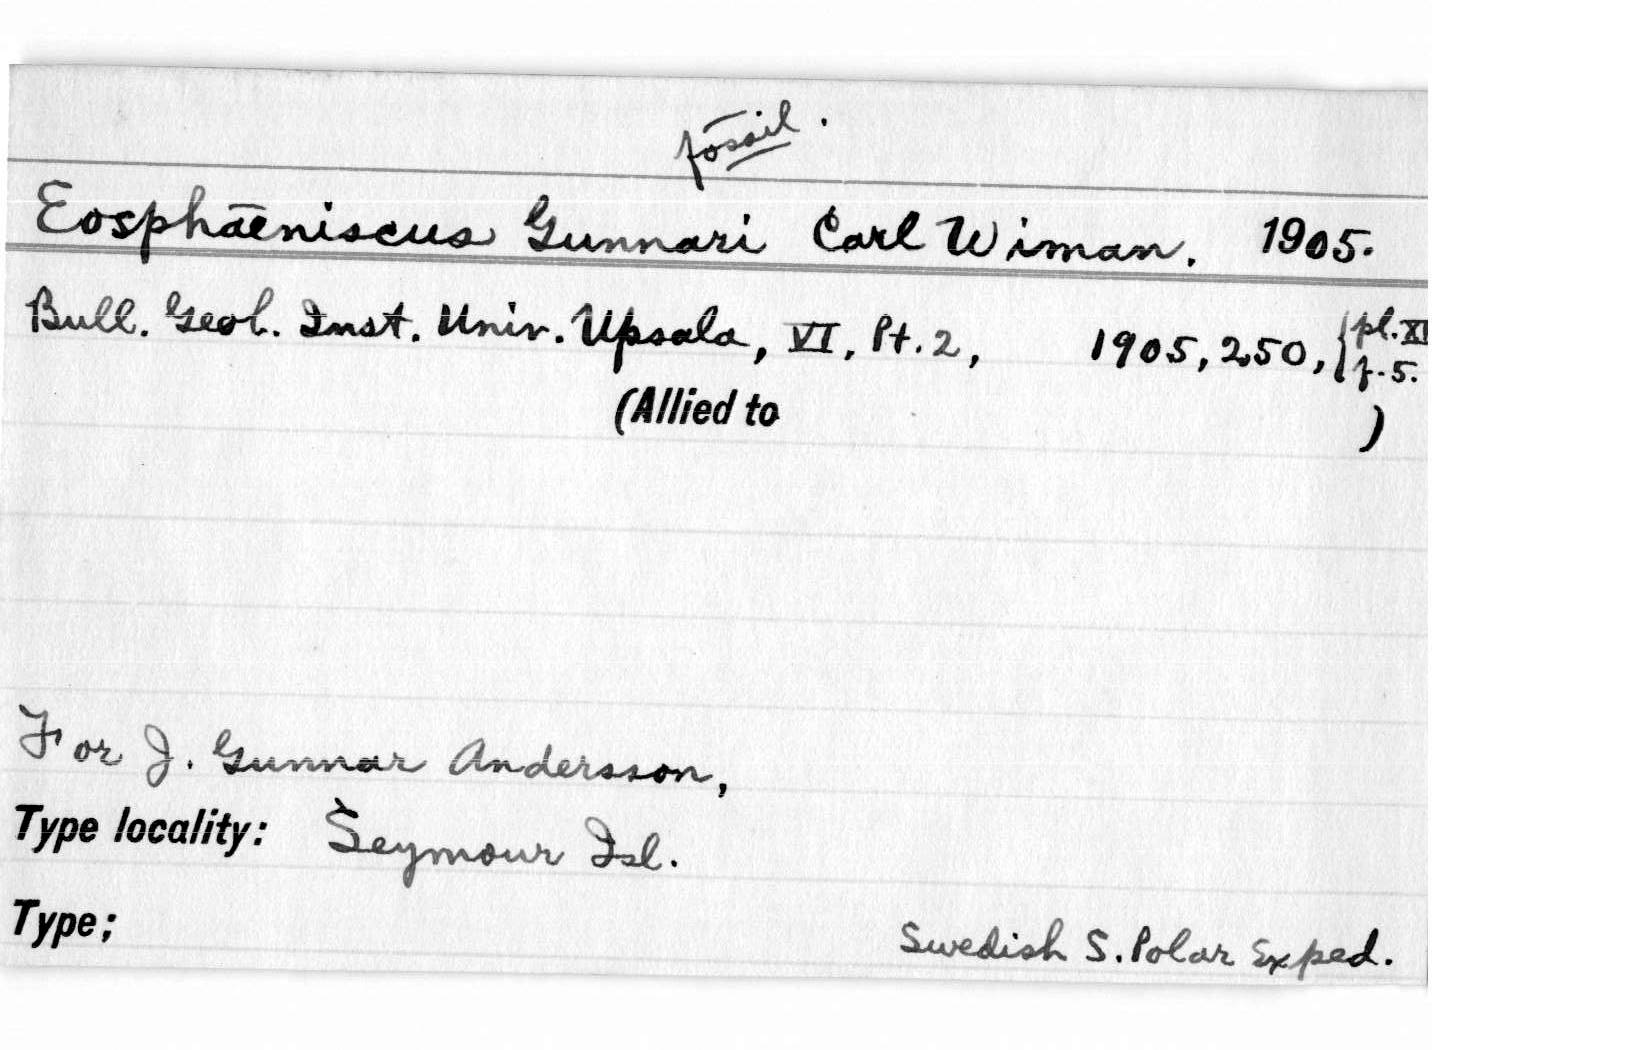 fossil.
Eosphaeniscus Gunnari Carl Wiman. 1905.
Bull. Geol. Inst. Univ. Upsala, VI, Pt. 2, 1905, 250, { pl. XI
f. 5.
(Allied to )
For J. Gunnar Andersson,
Type locality: Seymour Isl.
Type;
Swedish S. Polar Exped.